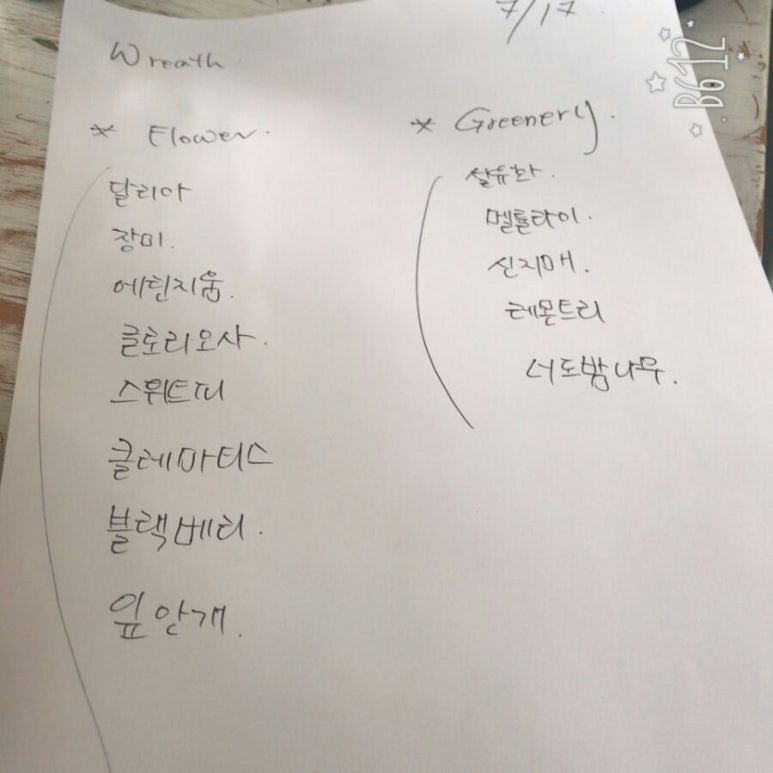 7/17.
Wreath
* Flower.
달리아
장미.
에린지움.
클로리오사.
스위트피
클레마티스
블랙베리.
잎안개.
* Greenery.
설유화.
멜륄라이.
신지매.
레몬트리
너도밤나무.
B612